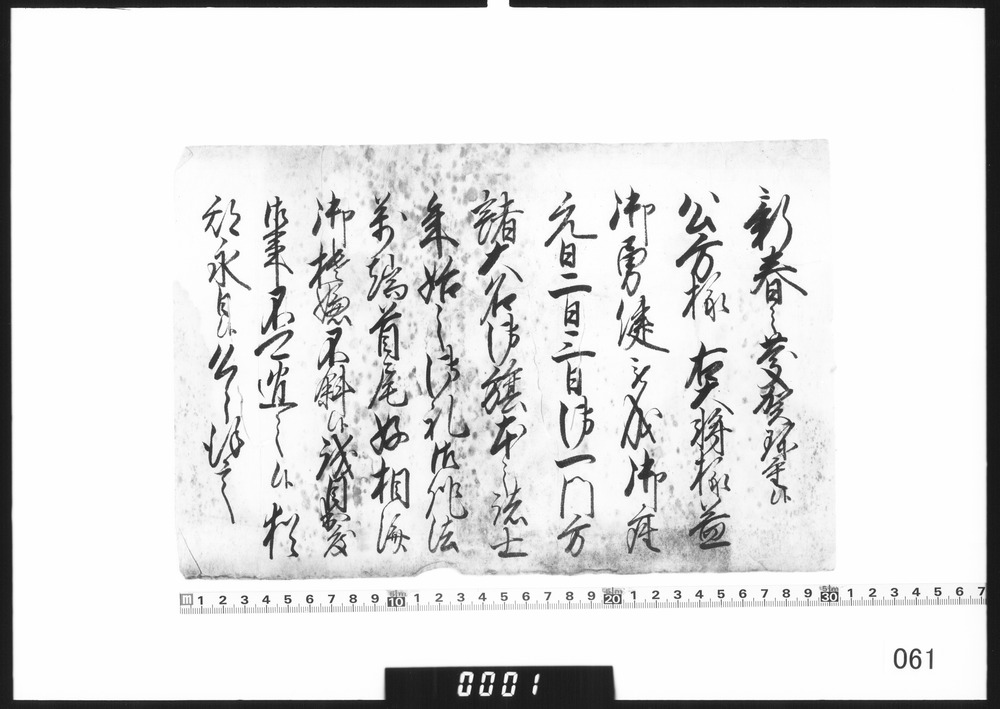 新春之慶賀珍重候
公方様右大将様益
御勇健被成御座
元日二日三日御一門方
諸大名御旗本之諸士
年始之御礼御作法
万端首尾好相済
御機嫌不斜候誠目出度
御事不可過之候猶
期永日候恐々謹言
m 1 2 3 4 5 6 7 8 9 10 1 2 3 4 5 6 7 8 9 20 1 2 3 4 5 6 7 8 9 30 1 2 3 4 5 6 7
061
0001